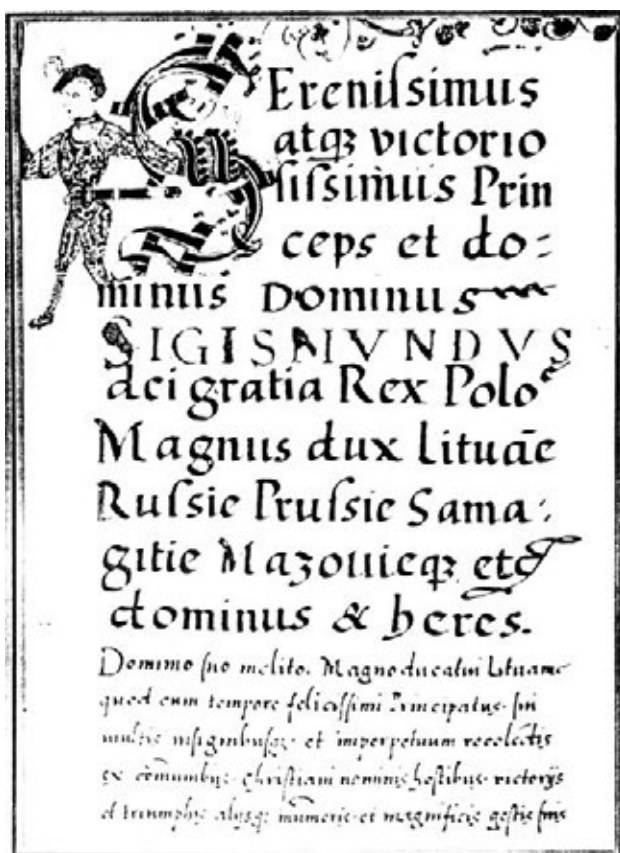 SEreniſsimus
atqꝫ victorio
ſiſsimus Prin
ceps et do:
minus Dominus
SIGISMVNDVS
dei gratia Rex Poloᵉ
Magnus dux Lituāe
Ruſsie Pruſsie Sama:
gitie Mazouieqꝫ etc
dominus & heres.
Domino ſuo inclito. Magno ducatui Lituanie
quod eum tempore feliciſſimi Principatus ſui
multis inſignibuſqꝫ et imperpetuum recolectis
ex cōmunibus Chriſtiani nominis hoſtibus victorijs
et triumphis alijsqꝫ numeris et magnificis geſtis ſuis